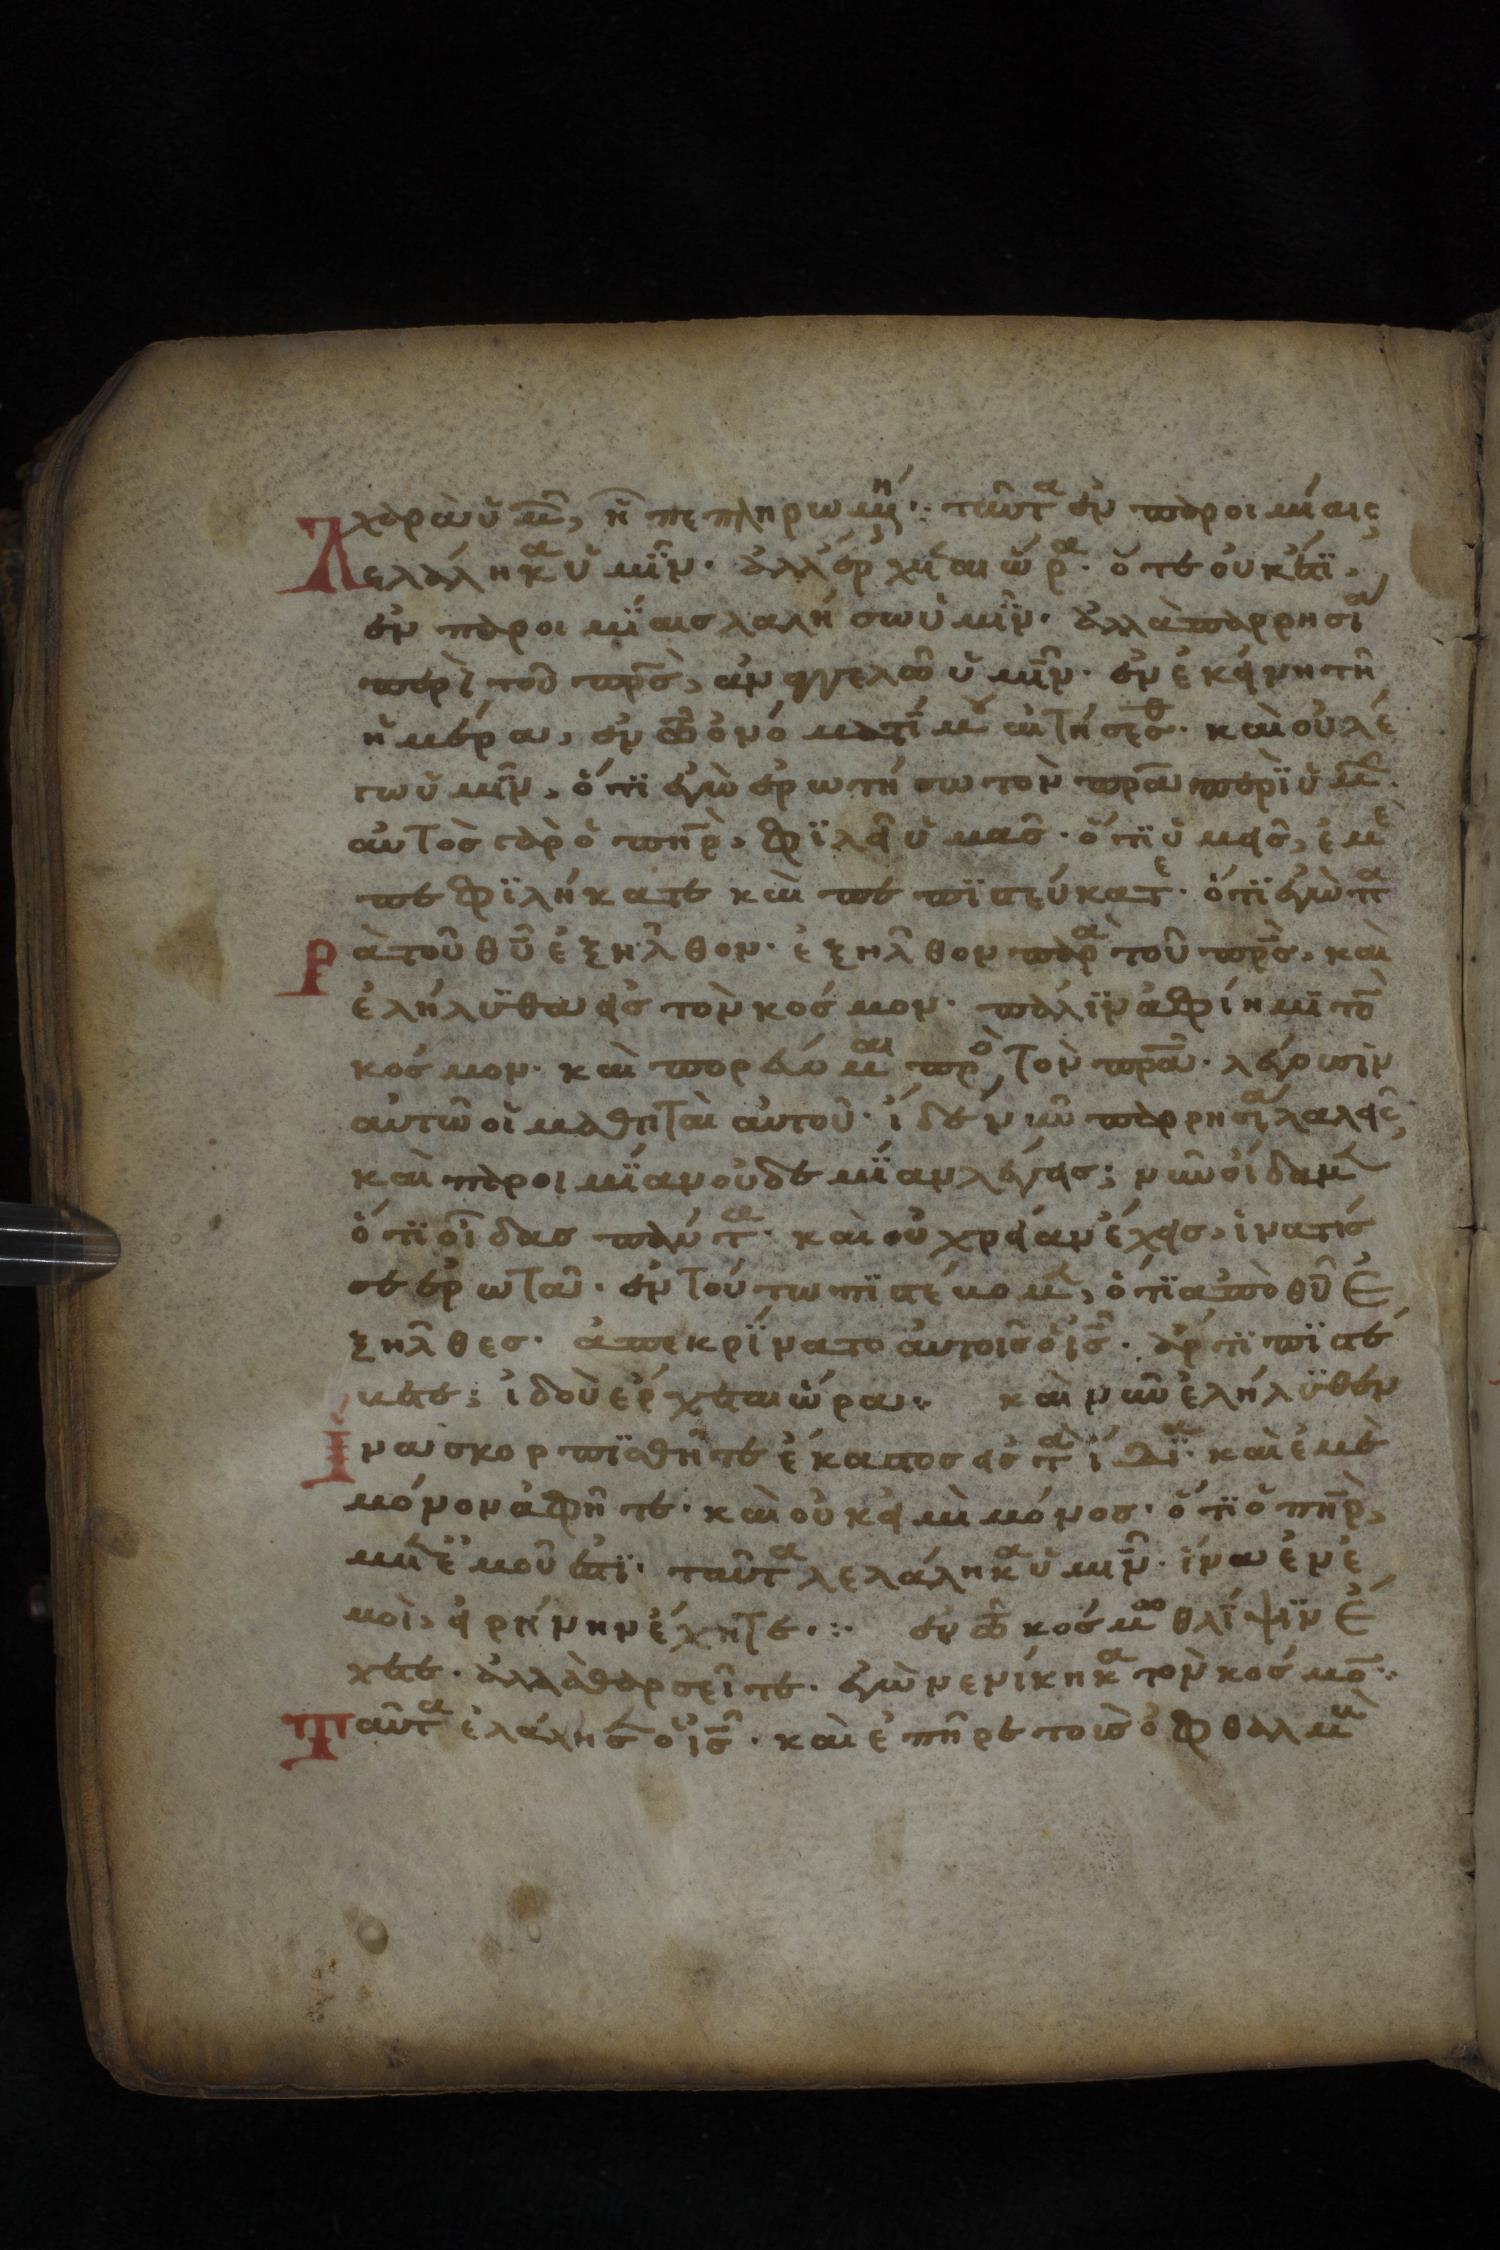 χαρὰ ὑμῶ, ἢ πεπληρωμένη·: ταῦτα ἐν παροιμίαις
λελάληκα ὑμῖν· ἀλλ' ἔρχεται ὥρα· ὅτε οὐκέτι,
ἐν παροιμίαισ λαλήσω ὑμῖν· ἀλλὰ παρρησία
περὶ τοῦ πρ̅σ, ἀναγγελῶ ὑμῖν· ἐν ἐκείνη τῆ
ἡμέρα, ἐν τῶ ὀνόματί μου αἰτήσεσθε· καὶ οὐ λέ
γω ὑμῖν, ὅτι ἐγὼ ἐρωτήσω τὸν πρ̅α περὶ ὑμῶν·
αὐτὸσ γὰρ ὁ πη̅ρ, φιλεῖ ὑμασ· ὅτι ὑμεῖσ, ἐμὲ
πεφιλήκατε καὶ πεπιστεύκατε· ὅτι ἐγὼ πα
ρὰ τοῦ θυ̅ ἐξῆλθον· ἐξῆλθον παρὰ τοῦ πρ̅σ, καὶ
ἐλήλυθα εἰσ τὸν κόσμον· πάλιν ἀφίημι τὸ
κόσμον· καὶ πορεύομαι πρὸς τὸν πρ̅α· λέγουσιν
αὐτῶ οἱ μαθηταὶ αὐτοῦ· ἴδε νῦν παρρησία λαλεῖς,
καὶ παροιμίαν οὐδεμίαν λέγεισ; νῦν οἴδαμεν
ὅτι οἶδασ πάντα· καὶ οὐ χρείαν ἔχεισ, ἵνα τίσ
σε ἐρωτᾶ· ἐν τούτω πιστεύομεν, ὅτι ἀπὸ θυ̅ ἐ
ξῆλθεσ· ἀπεκρίνατο αὐτοῖσ ὁ ισ̅· ἄρτι πιστεύ
ετε; ἰδοὺ ἔρχεται ὥρα·: καὶ νῦν ἐλήλυθεν
ἵνα σκορπισθῆτε ἕκαστοσ εἰσ τὰ ἴδια· καὶ ἐμὲ
μόνον ἀφῆτε· καὶ οὐκ εἰμὶ μόνοσ· ὅτι ὁ πη̅ρ,
μετ' ἐμοῦ ἐστί· ταῦτα λελάληκα ὑμῖν· ἵνα ἐν ἐ
μοὶ, εἰρήνην ἔχητε·: ἐν τῶ κόσμω θλίψιν ἔ
χετε· ἀλλὰ θαρσεῖτε· ἐγὼ νενίκηκα τὸν κόσμο̅·:
Ταῦτα ἐλάλησεν ὁ ισ̅· καὶ ἐπῆρε τοὺσ ὀφθαλμοὺ